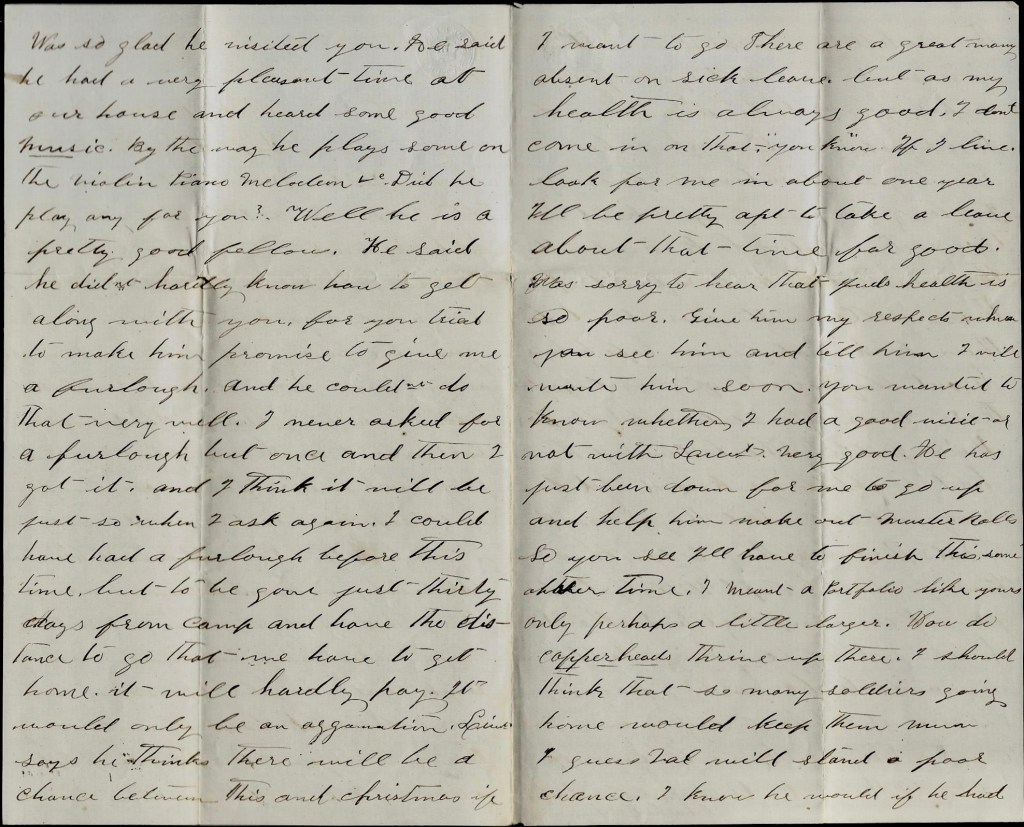 Was so glad he visited you. He said
he had a very pleasant time at
our house and heard some good
music. By the way he plays some on
the violin Piano Melodeon &c. Did he
play any for you?. Well he is a
pretty good fellow. He said
he did'nt hardly know how to get
along with you, for you tried
to make him promise to give me
a furlough. And he could'nt do
that very well. I never asked for
a furlough but once and then I
got it. and I think it will be
just so when I ask again. I could
have had a furlough before this
time, but to be gone just thirty
days from camp and have the dis-
tance to go that we have to get
home. it will hardly pay. It
would only be an aggavation.
says he thinks there will be a
chance between this and christmas if
I want to go There are a great many
absent on sick leave. but as my
health is always good, I don't
come in on that, "you know" If I live.
look for me in about one year
I'll be pretty apt to take a leave
about that time for good.
Was sorry to hear that health is
so poor. Give him my respects when
you see him and tell him I will
write him soon. You wanted to
know whether I had a good visit or
not with Very good. He has
just been down for me to go up
and help him make out Muster Rolls
So you see I'll have to finish this some
other time. I meant a Portfolio like yours
only perhaps a little larger. How do
copperheads thrive up there. I should
think that so many soldiers going
home would keep them mum
I guess Val will stand a poor
chance. I know he would if he had